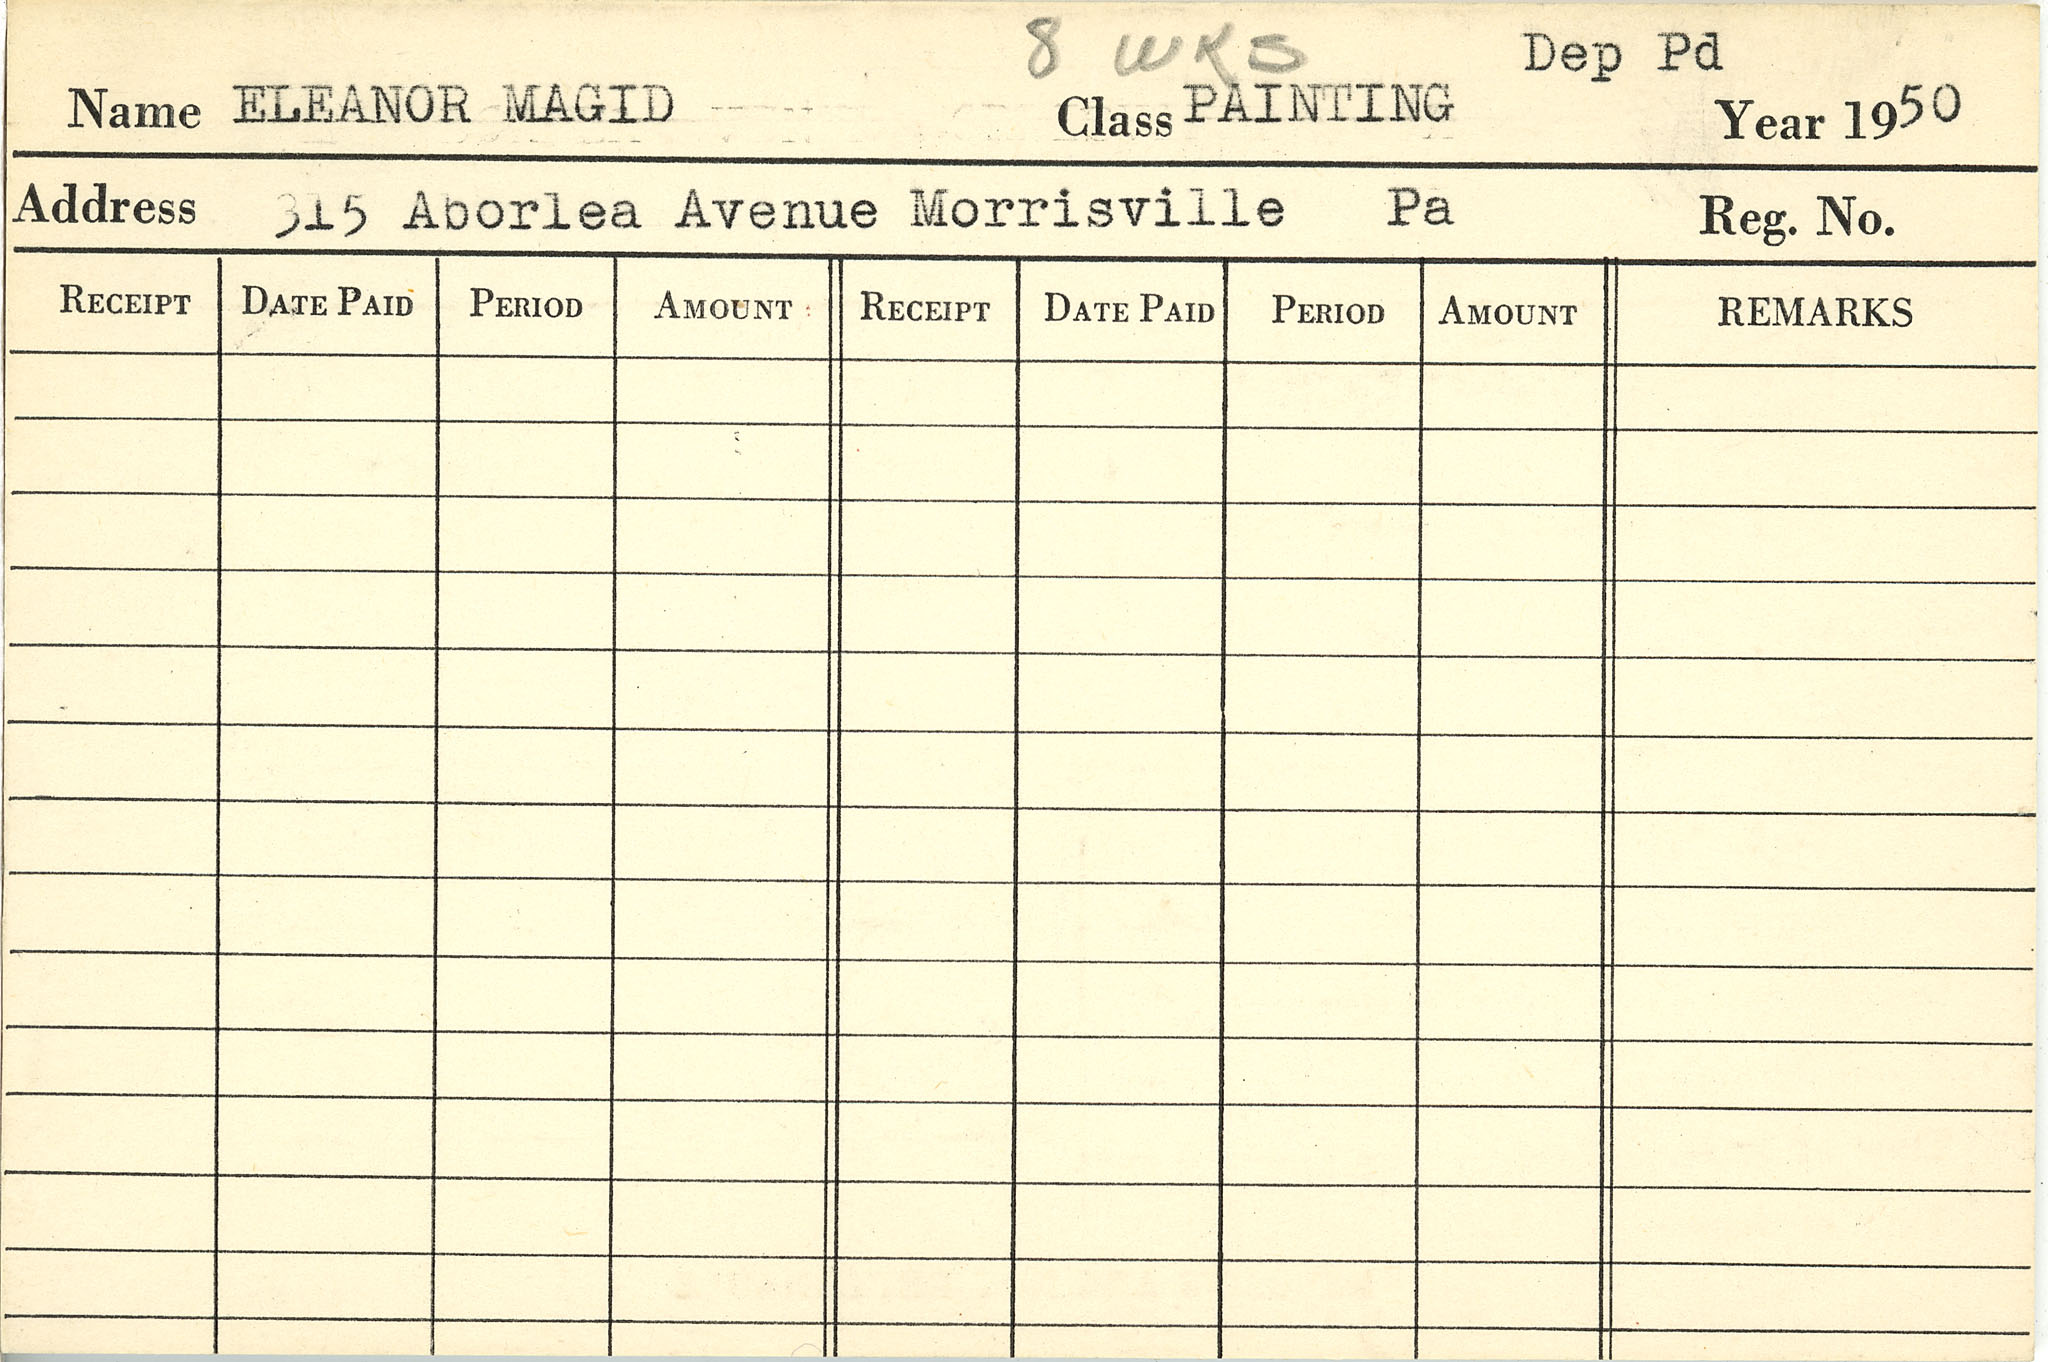 8 WKS Dep Pd
Name ELEANOR MAGID Class PAINTING Year 1950
Address 315 Aborlea Avenue Morrisville Pa Reg. No.
RECEIPT DATE PAID PERIOD AMOUNT RECEIPT DATE PAID PERIOD AMOUNT REMARKS